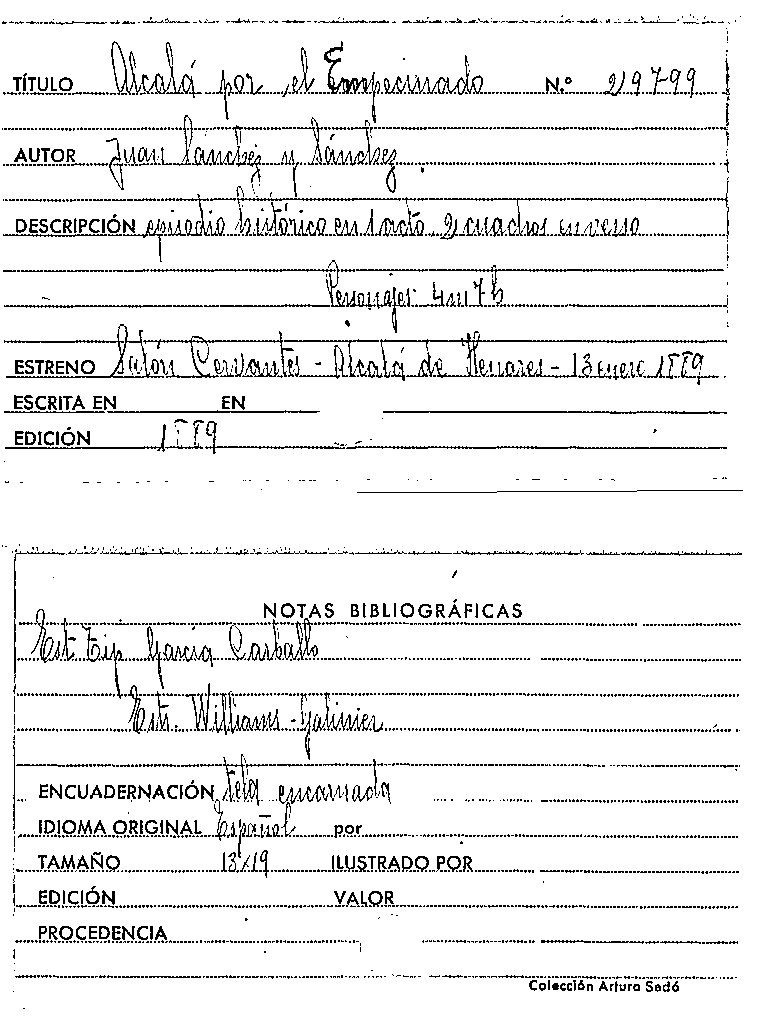 TÍTULO Alcalá por el Empecinado N.º 2197-99
AUTOR Juan Sánchez y Sánchez
DESCRIPCIÓN episodio histórico en 1 acto 2 cuadros en verso
Personajes 4m 7h
ESTRENO Salón Cervantes - Alcalá de Henares - 13 enero 1889
ESCRITA EN EN
EDICIÓN 1889
NOTAS BIBLIOGRÁFICAS
Est Tip García Carballo
Estr. Williams - Galinier
ENCUADERNACIÓN tela encarnada
IDIOMA ORIGINAL Español por
TAMAÑO 13x19 ILUSTRADO POR
EDICIÓN VALOR
PROCEDENCIA
Colección Arturo Sedó